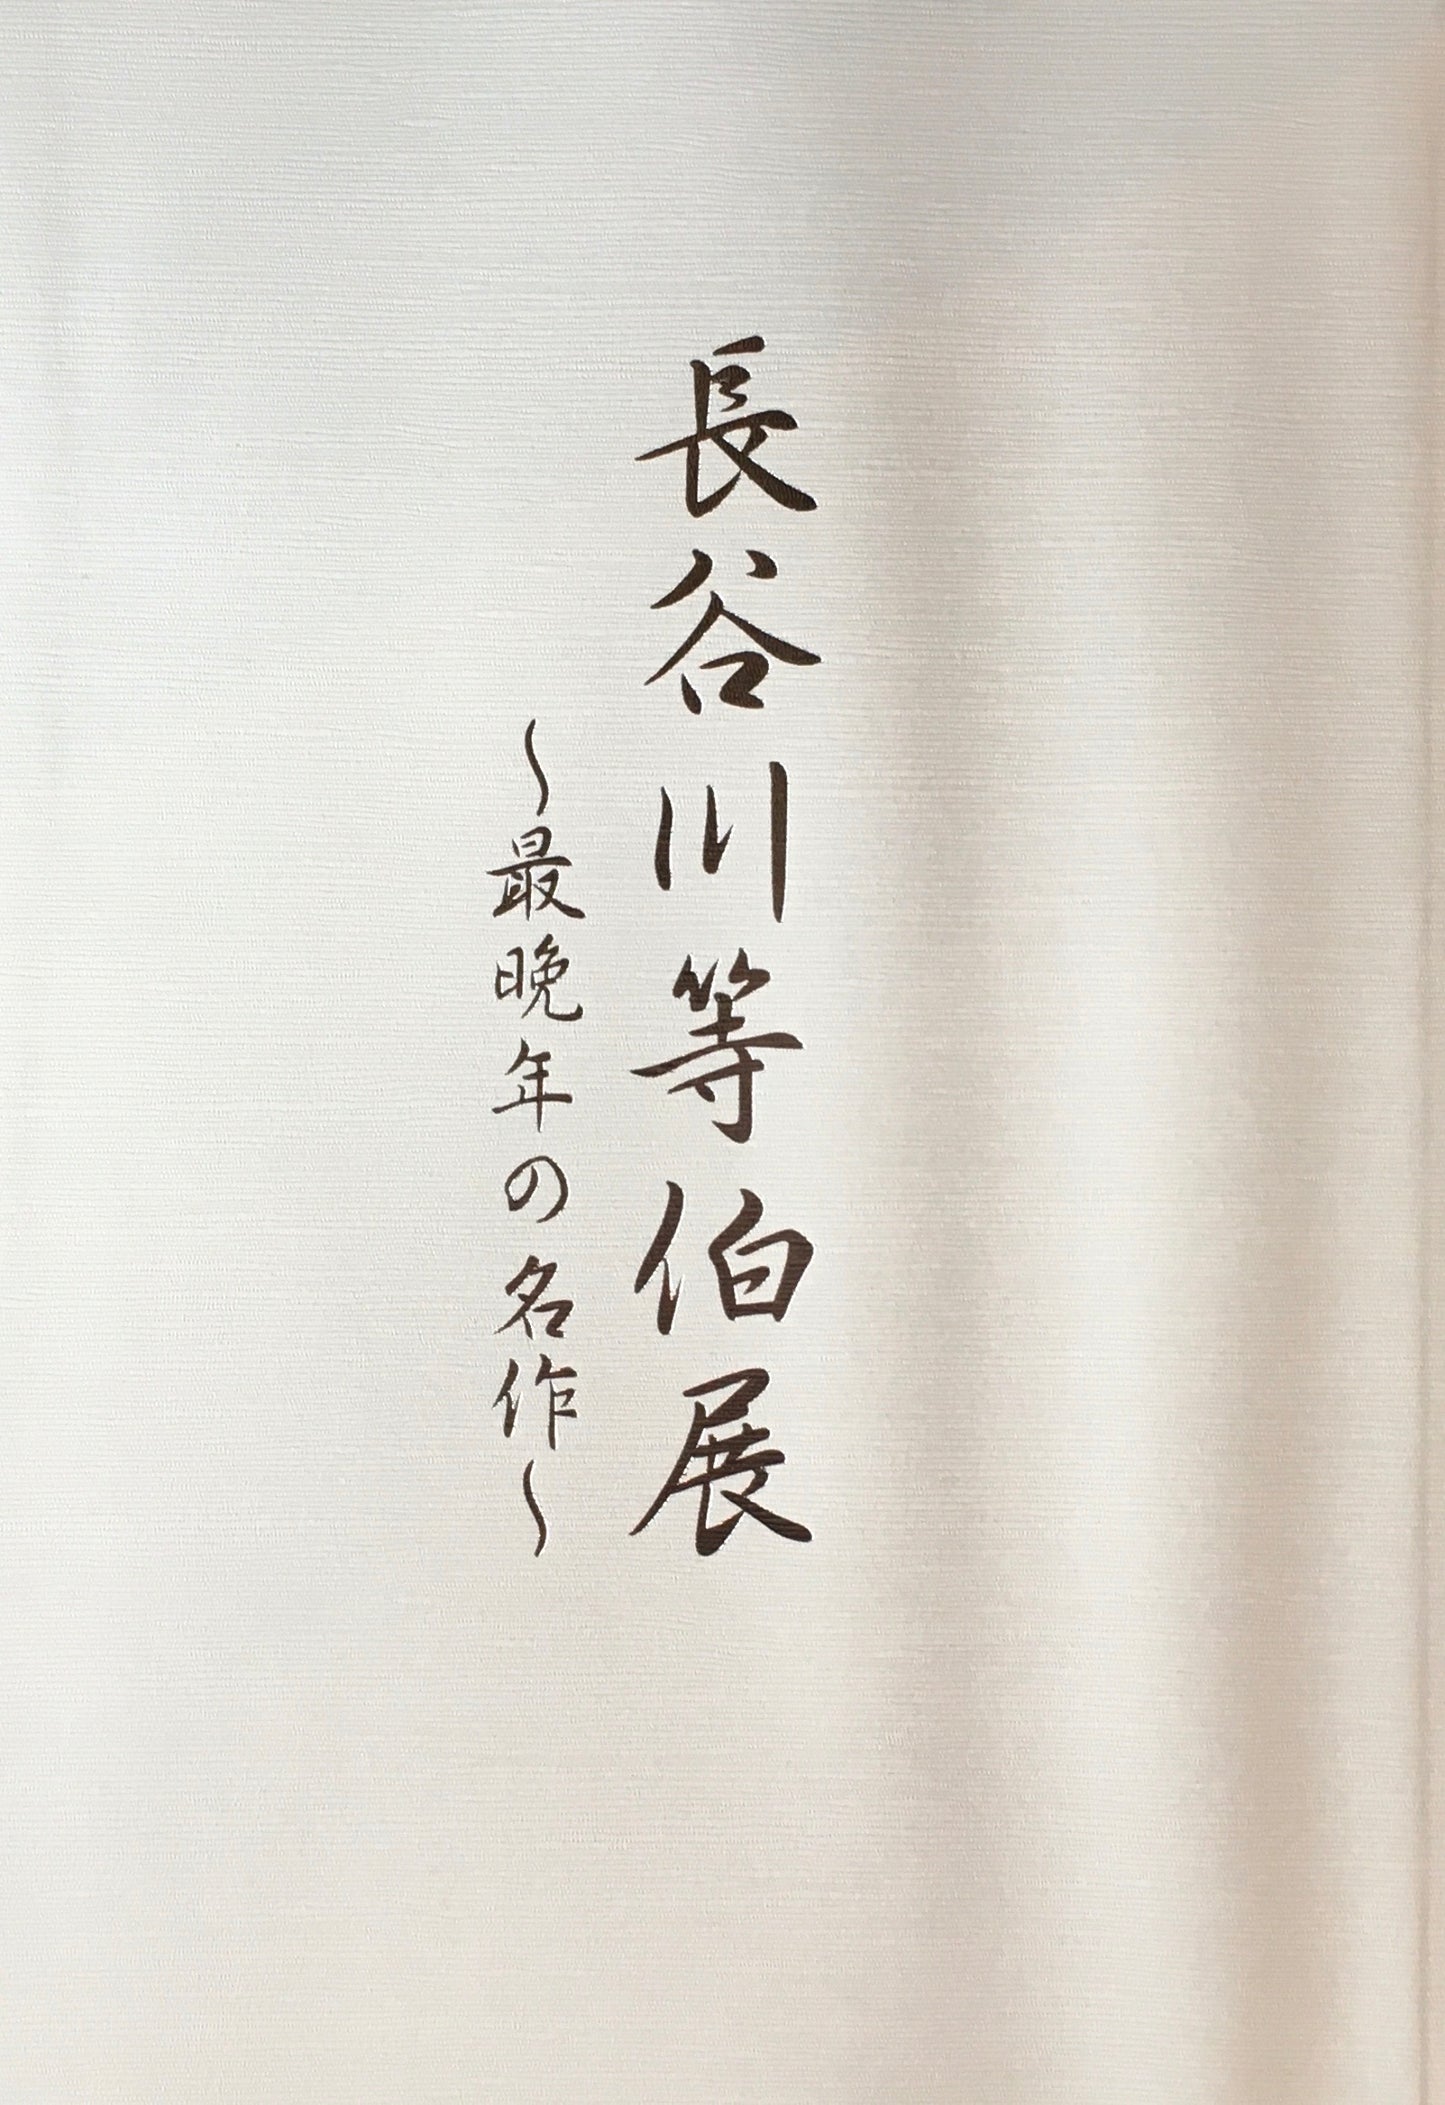 長谷川等伯展
～最晩年の名作～